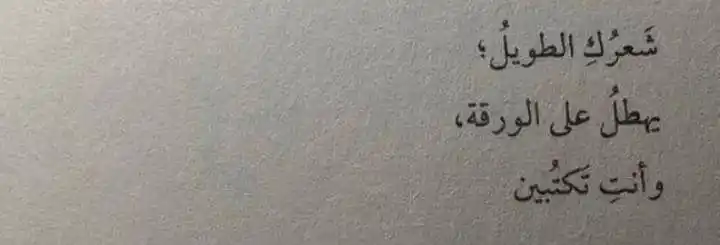 شَعرُكِ الطويلُ؛
يهطلُ على الورقة،
وأنتِ تَكتُبين